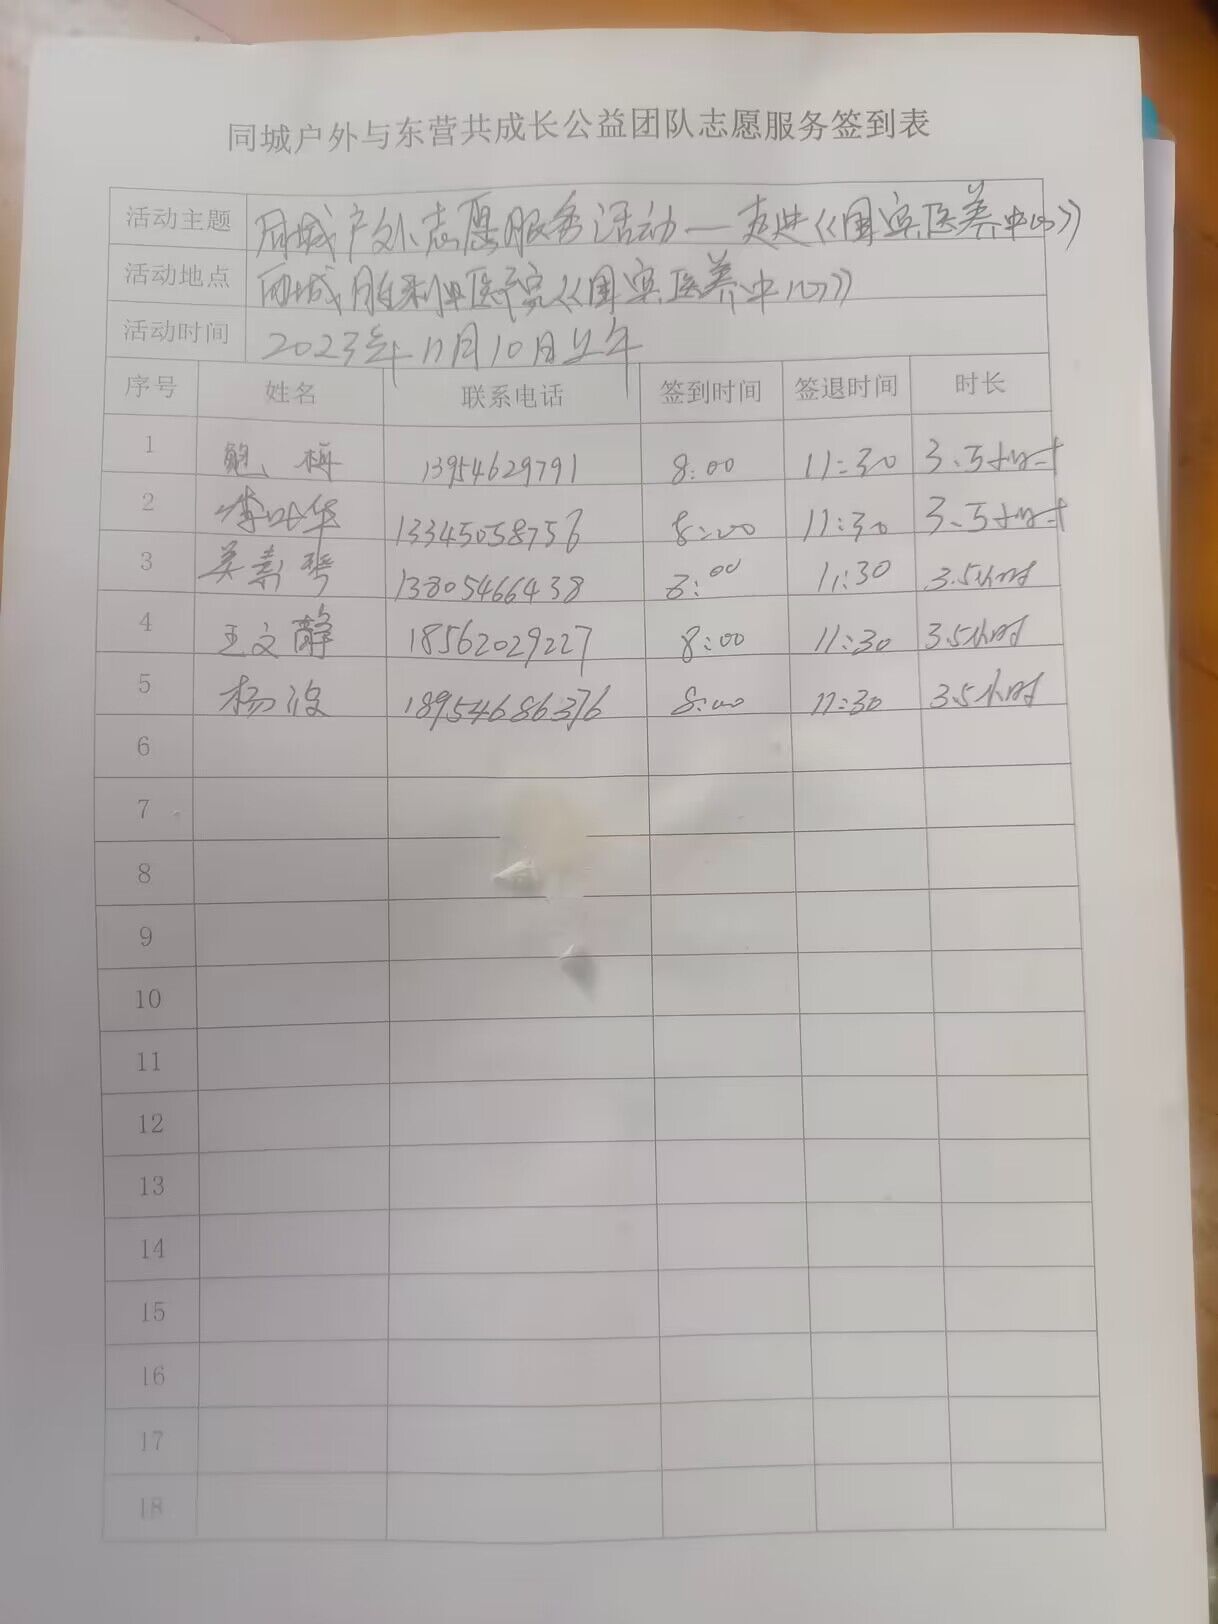 同城户外与东营共成长公益团队志愿服务签到表
活动主题 同城户外志愿服务活动—走进《国宾医养中心》
活动地点 西城胜利医院《国宾医养中心》
活动时间 2023年11月10日上午
序号 姓名 联系电话 签到时间 签退时间 时长
1 鲍梅 13954629791 8:00 11:30 3.5小时
2 华 13345058756 8:00 11:30 3.5小时
3 吴素琴 13805466438 8:00 11:30 3.5小时
4 王文静 18562029227 8:00 11:30 3.5小时
5 杨波 18954686376 8:00 11:30 3.5小时
6
7
8
9
10
11
12
13
14
15
16
17
18